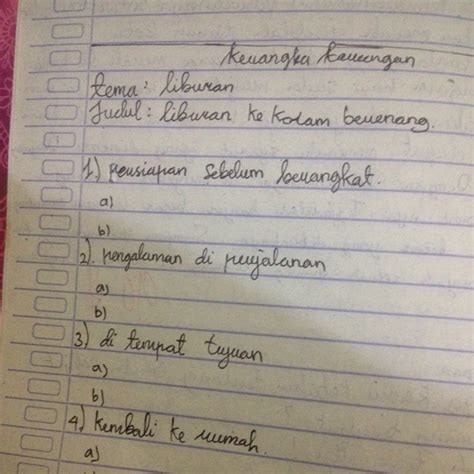 Kerangka karangan
tema : liburan
Judul : liburan ke kolam berenang.
1.) persiapan sebelum berangkat.
a)
b)
2). pengalaman di perjalanan
a)
b)
3) di tempat tujuan
a)
b)
4) kembali ke rumah.
a)